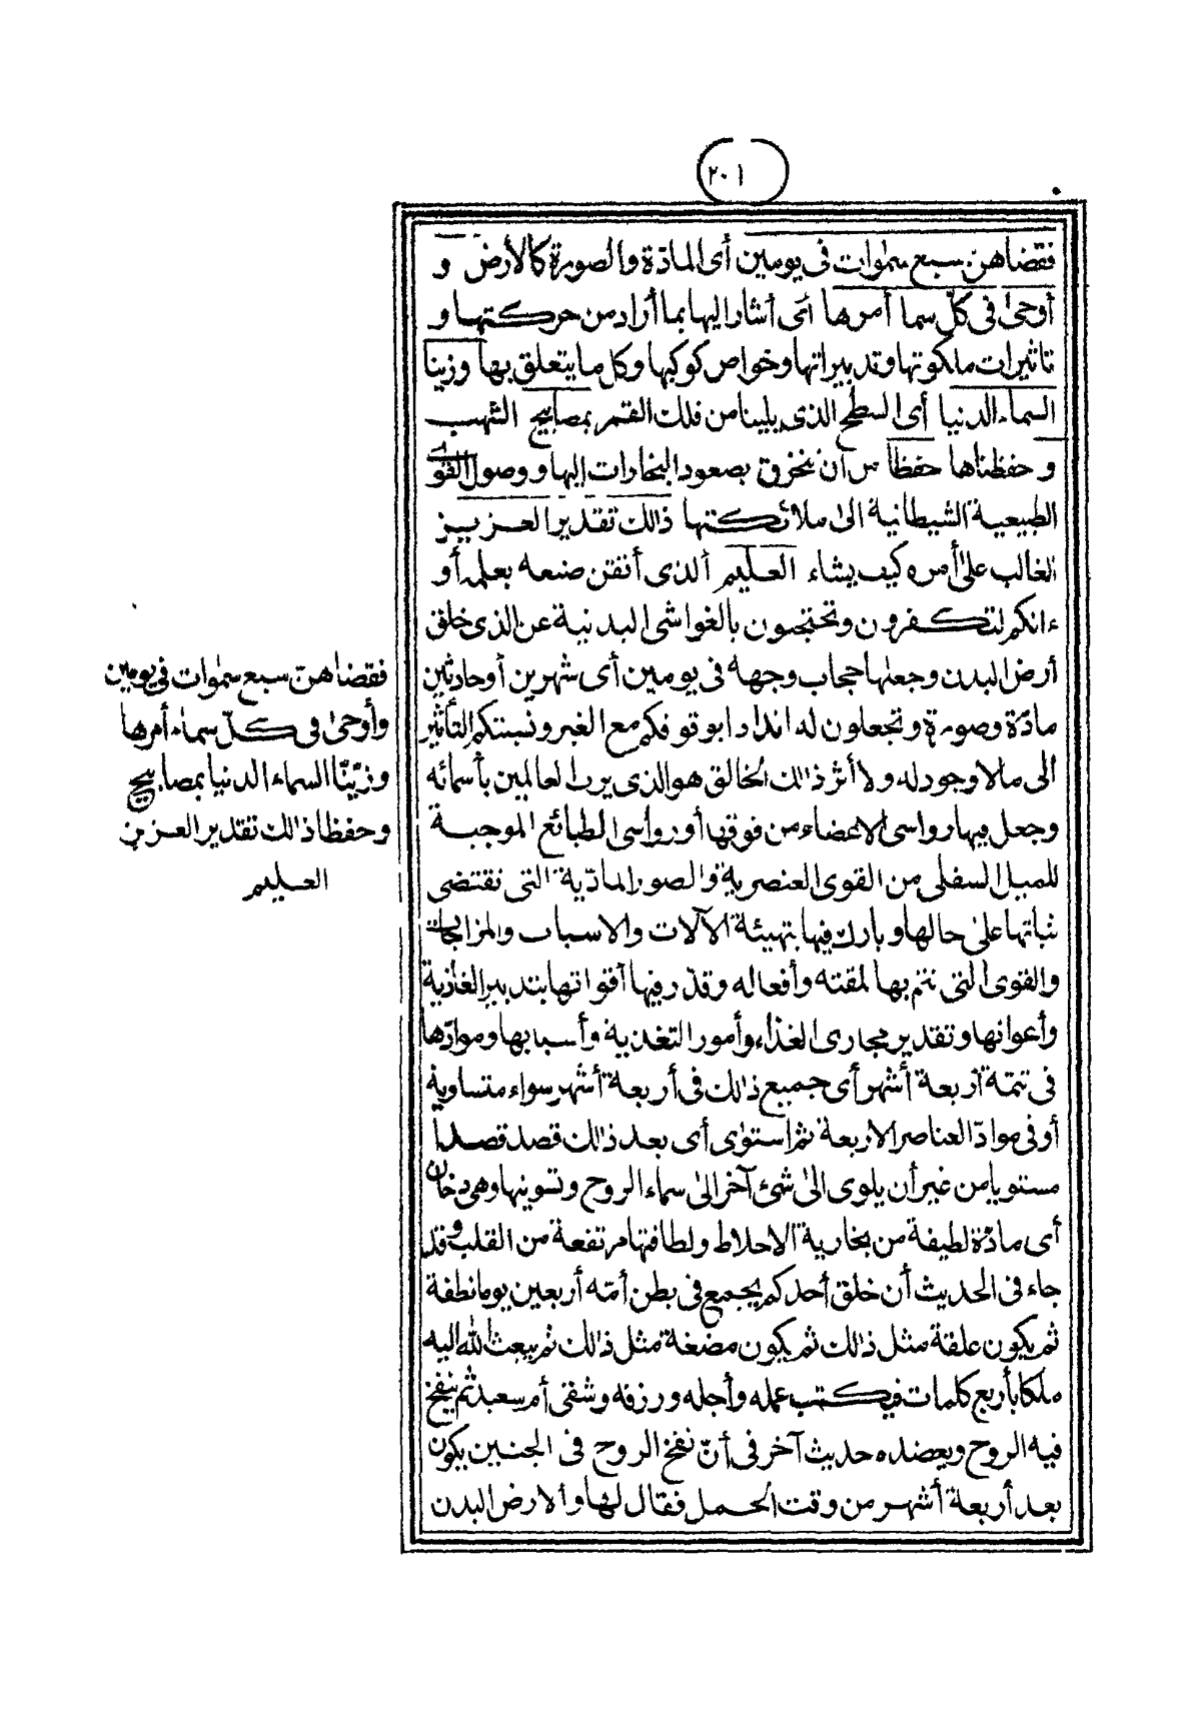 ٢٠١
فقضاهن سبع سموات فى يومين أى المادّة والصورة كالأرض و
أوحىٰ فى كلّ سما أمرها أى أشار اليها بما أراد من حركتها و
تاثيرات ملكوتها وتدبيراتها وخواص كوكبها وكل ما يتعلق بها وزينا
السماء الدنيا أى السطح الذى يلينا من فلك القمر بمصابيح الشهب
و حفظناها حفظا من أن تنخرق بصعود البخارات إليها ووصول القوىٰ
الطبيعية الشيطانية الىٰ ملائكتها ذالك تقدير العزيز
الغالب علىٰ أمره كيف يشاء العليم الذى أتقن صنعه بعلمه أو
ءانكم لتكفرون وتحتجبون بالغواشى البدنية عن الذى خلق
أرض البدن وجعلها حجاب وجهه فى يومين أى شهرين أو حادثين
مادّة وصورة وتجعلون له اندادا بوقوفكم مع الغير ونسبتكم التأثير
الى مالا وجود له ولا أثر ذالك الخالق هو الذى يرب العالمين بأسمائه
وجعل فيها رواسى الاعضاء من فوقها أو رواسى الطبائع الموجبة
للميل السفلى من القوى العنصرية والصور المادّية التى تقتضى
ثباتها علىٰ حالها وبارك فيها بتهيئة الآلات والاسباب والمزاجات
والقوى التى تتم بها لمقته وأفعاله وقدّر فيها أقواتها بتدبير الغاذية
وأعوانها وتقدير مجارى الغذاء وأمور التغذية وأسبابها وموادّها
فى تتمّة أربعة أشهر أى جميع ذالك فى أربعة أشهر سواء متساوية
أو فى موادّ العناصر الاربعة ثم استوىٰ أى بعد ذالك قصد قصدا
مستويا من غير أن يلوى الىٰ شئ آخر الىٰ سماء الروح وتسويتها وهى دخان
أى مادّة لطيفة من بخارية الاخلاط ولطافتها مرتفعة من القلب وقد
جاء فى الحديث أن خلق أحدكم يجمع فى بطن أمّه أربعين يوما نطفة
ثم يكون علقة مثل ذالك ثم يكون مضغة مثل ذالك ثم يبعث الله اليه
ملكا بأربع كلمات فيكتب عمله وأجله ورزقه وشقى أم سعيد ثم ينفخ
فيه الروح ويعضده حديث آخر فى أنّ نفخ الروح فى الجنين يكون
بعد أربعة أشهر من وقت الحمل فقال لها والارض البدن
فقضاهنّ سبع سموات فى يومين
وأوحىٰ فى كلّ سماء أمرها
وزيّنّا السماء الدنيا بمصابيح
وحفظا ذالك تقدير العزيز
العليم